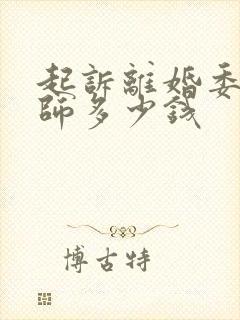 起訴離婚委
師多少錢
博古特